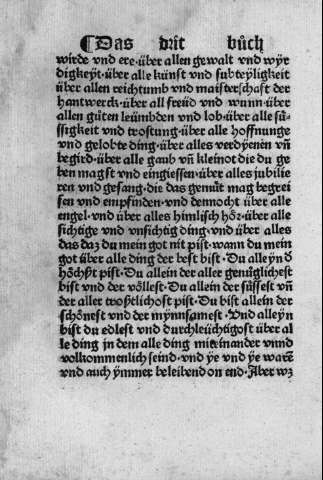 ¶Das drit bůch
wirde vnd ere·über allen gewalt vnd wyr
digkeyt·über alle künst vnd subteyligkeit
über allen reichtumb vnd maisterschaft der
hantwerck·über all freüd vnd wunn·über
allen gůten leümbden vnd lob·über alle sü⸗
ssigkeit vnd trostung·über alle hoffnunge
vnd gelobte ding·über alles verdyenen vn̄
begird·über alle gaub vn̄ kleinot die du ge
ben magst vnd eingiessen·über alles jubilie
ren vnd gesang·die das gemüt mag begrei
fen vnd empfinden·vnd dennocht über alle
engel·vnd über alles himlisch hör·über alle
sichtige vnd vnsichtig ding·vnd über alles
das daz du mein got nit pist·wann du mein
got über alle ding der best bist·Du alleyn d̕
höchst pist·Du allein der aller genüglichest
bist vnd der völlest·Du allein der süssest vn̄
der aller trostlichost pist·Du bist allein der
schönest vnd der mynnsamest·Vnd alleyn
bist du edlest vnd durchleüchtigost über al
le ding in dem alle ding miteinander vnnd
volkommenlich seind·vnd ye vnd ye warn̄
vnd auch ymmer beleibend on end·Aber wz